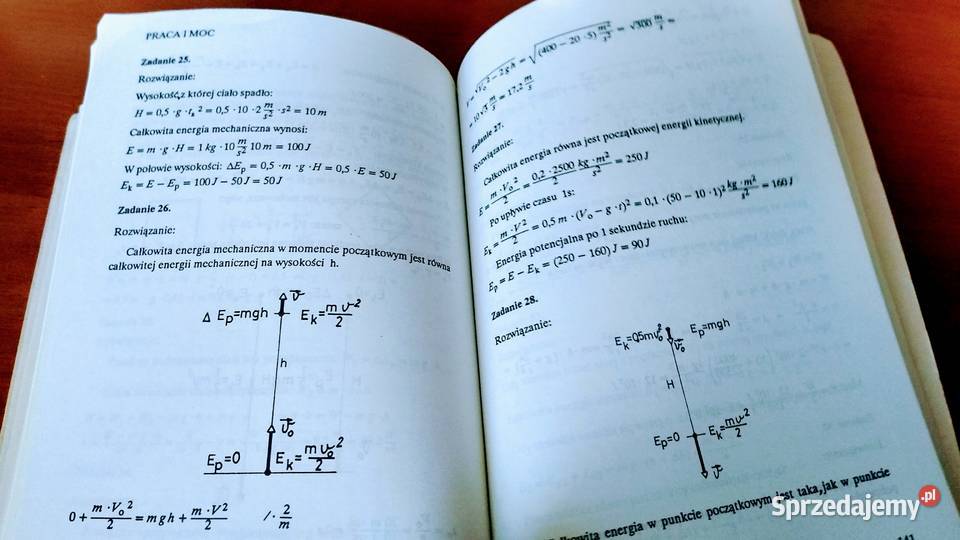 PRACA I MOC
Zadanie 25.
Rozwiązanie:
Wysokość,z której ciało spadło:
H = 0,5 · g · tₛ² = 0,5 · 10 · 2 m/s² · s² = 10 m
Całkowita energia mechaniczna wynosi:
E = m · g · H = 1 kg · 10 m/s² 10 m = 100 J
W połowie wysokości: ΔEₚ = 0,5 · m · g · H = 0,5 · E = 50 J
Eₖ = E − Eₚ = 100 J − 50 J = 50 J
Zadanie 26.
Rozwiązanie:
Całkowita energia mechaniczna w momencie początkowym jest równa
całkowitej energii mechanicznej na wysokości h.
v⃗
Δ Eₚ=mgh Eₖ=mv²/2
h
v⃗₀
Eₚ=0 Eₖ=mv₀²/2
0 + m · V₀²/2 = mgh + m · V²/2 /· 2/m
V = √(V₀² − 2gh) = √((400 − 20 · 5) m²/s²) = √300 m/s =
= 10√3 m/s = 17,2 m/s
Zadanie 27.
Rozwiązanie:
Całkowita energia równa jest początkowej energii kinetycznej.
E = m · V₀²/2 = 0,2 · 2500/2 kg · m²/s² = 250 J
Po upływie czasu 1s:
Eₖ = m · V²/2 = 0,5 m · (V₀ − g · t)² = 0,1 · (50 − 10 · 1)² kg · m²/s² = 160 J
Energia potencjalna po 1 sekundzie ruchu:
Eₚ = E − Eₖ = (250 − 160) J = 90 J
Zadanie 28.
Rozwiązanie:
Eₖ=0,5mv₀² Eₚ=mgh
v⃗₀
H
Eₚ=0 Eₖ=mv²/2
v⃗
energia w punkcie początkowym jest taka,jak w punkcie
Sprzedajemy.pl